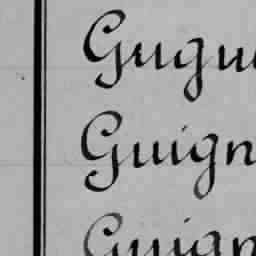 Gugu
Guign
Guign